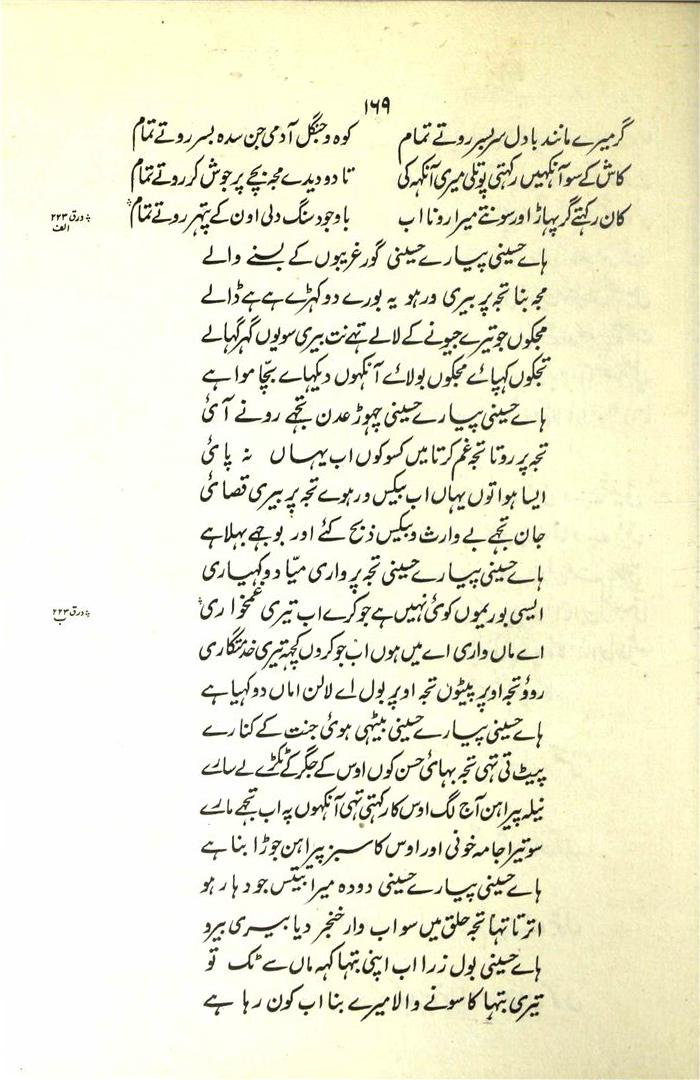 ۱۶۹
گر میرے مانند بادل سر بسر روتے تمام کوہ و جنگل آدمی جن سدہ بسر روتے تمام
کاش کے سو آنکہیں رکہتی پوتلی میری آنکہہ کی تا دو دیدے مجہ بچے پر جوش کر روتے تمام
کان رکہتے گر پہاڑ اور سونتے میرا رونا اب باوجود سنگ دلی اون کے پتہر روتے تمام*
* ورق ۲۲۳ الف
ہاے حسینی پیارے حسینی گور غریبوں کے بسنے والے
مجہ بنا تجہ پر بیری ورہو یہ بورے دوکہڑے ہے ہے ڈالے
مجکوں جو تیرے جیونے کے لالے تہے نت بیری سویوں گہر گہالے
تجکوں کہپائے مجکوں بولائے آنکہوں دیکہاے بچّا موا ہے
ہاے حسینی پیارے حسینی چہوڑ عدن تجہے رونے آئ
تجہ پر روتا تجہ غم کرتا میں کسو کوں اب یہاں نہ پائ
ایسا ہوا توں یہاں اب بیکس ور ہوے تجہ پر بیری قصائ
جان تجہے بے وارث و بیکس ذبح کئے اور بوجہے بہلا ہے
ہاے حسینی پیارے حسینی تجہ پر واری میّا دوکہیاری
ایسی بوریموں کوئ نہیں ہے جو کرے اب تیری غمخواری*
* ورق ۲۲۳ ب
اے ماں واری اے میں ہوں اب جو کروں کچہہ تیری خدمتگاری
روؤ تجہ اوپر پیٹوں تجہ اوپر بول اے لالن اماں دوکہیا ہے
ہاے حسینی پیارے حسینی بیٹہی ہوئ جنت کے کنارے
پیٹ تی تہی تجہ بہائ حسن کوں اوس کے جگر کے ٹکڑے لے سارے
نیلہ پیراہن آج لگ اوس کا رکہتی تہی آنکہوں پہ اب تجہے مارے
سو تیرا جامہ خونی اور اوس کا سبز پیراہن جوڑا بنا ہے
ہاے حسینی پیارے حسینی دودہ میرا بتیس جو دہار ہو
اترتا تہا تجہ حلق میں سو اب وار خنجر دیا بیری بیرو
ہاے حسینی بول زرا اب اپنی بتہا کہہ ماں سے ٹک تو
تیری بتہا کا سونے والا میرے بنا اب کون رہا ہے